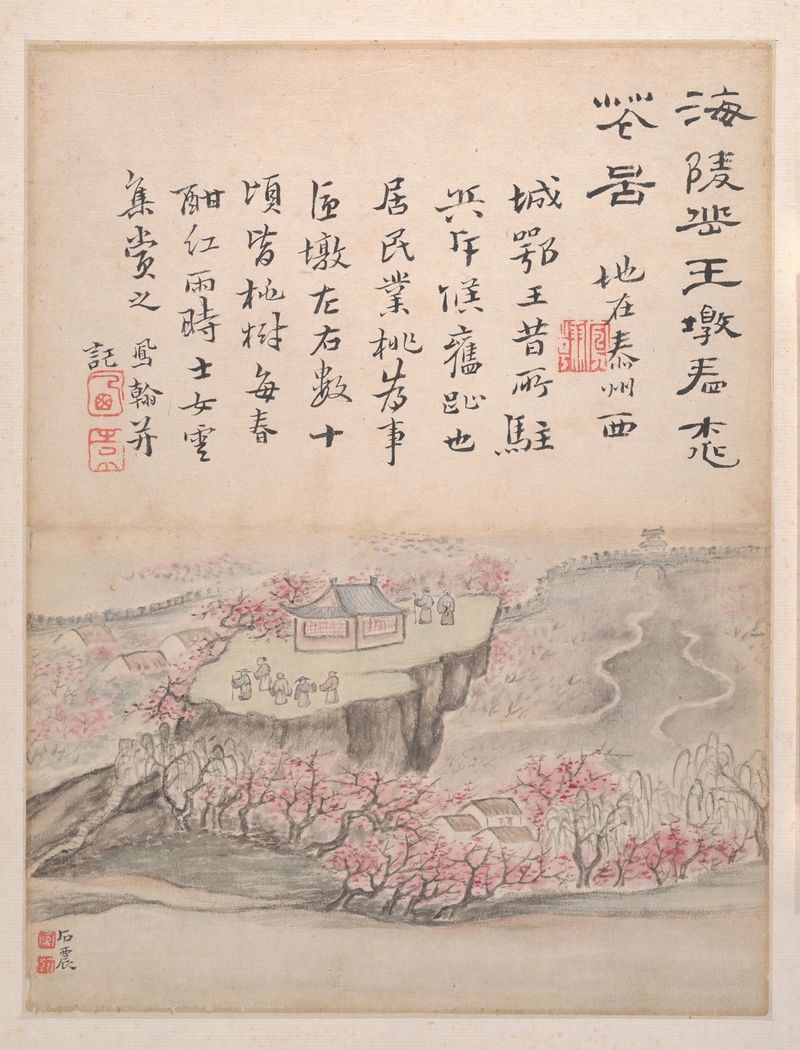 海陵岳王墩看桃
花圖 地在泰州西
城鄂王昔所駐
兵斥候舊趾也
居民業桃為事
匝墩左右數十
頃皆桃樹每春
酣紅雨時士女雲
集賞之 鳳翰并
記
石震